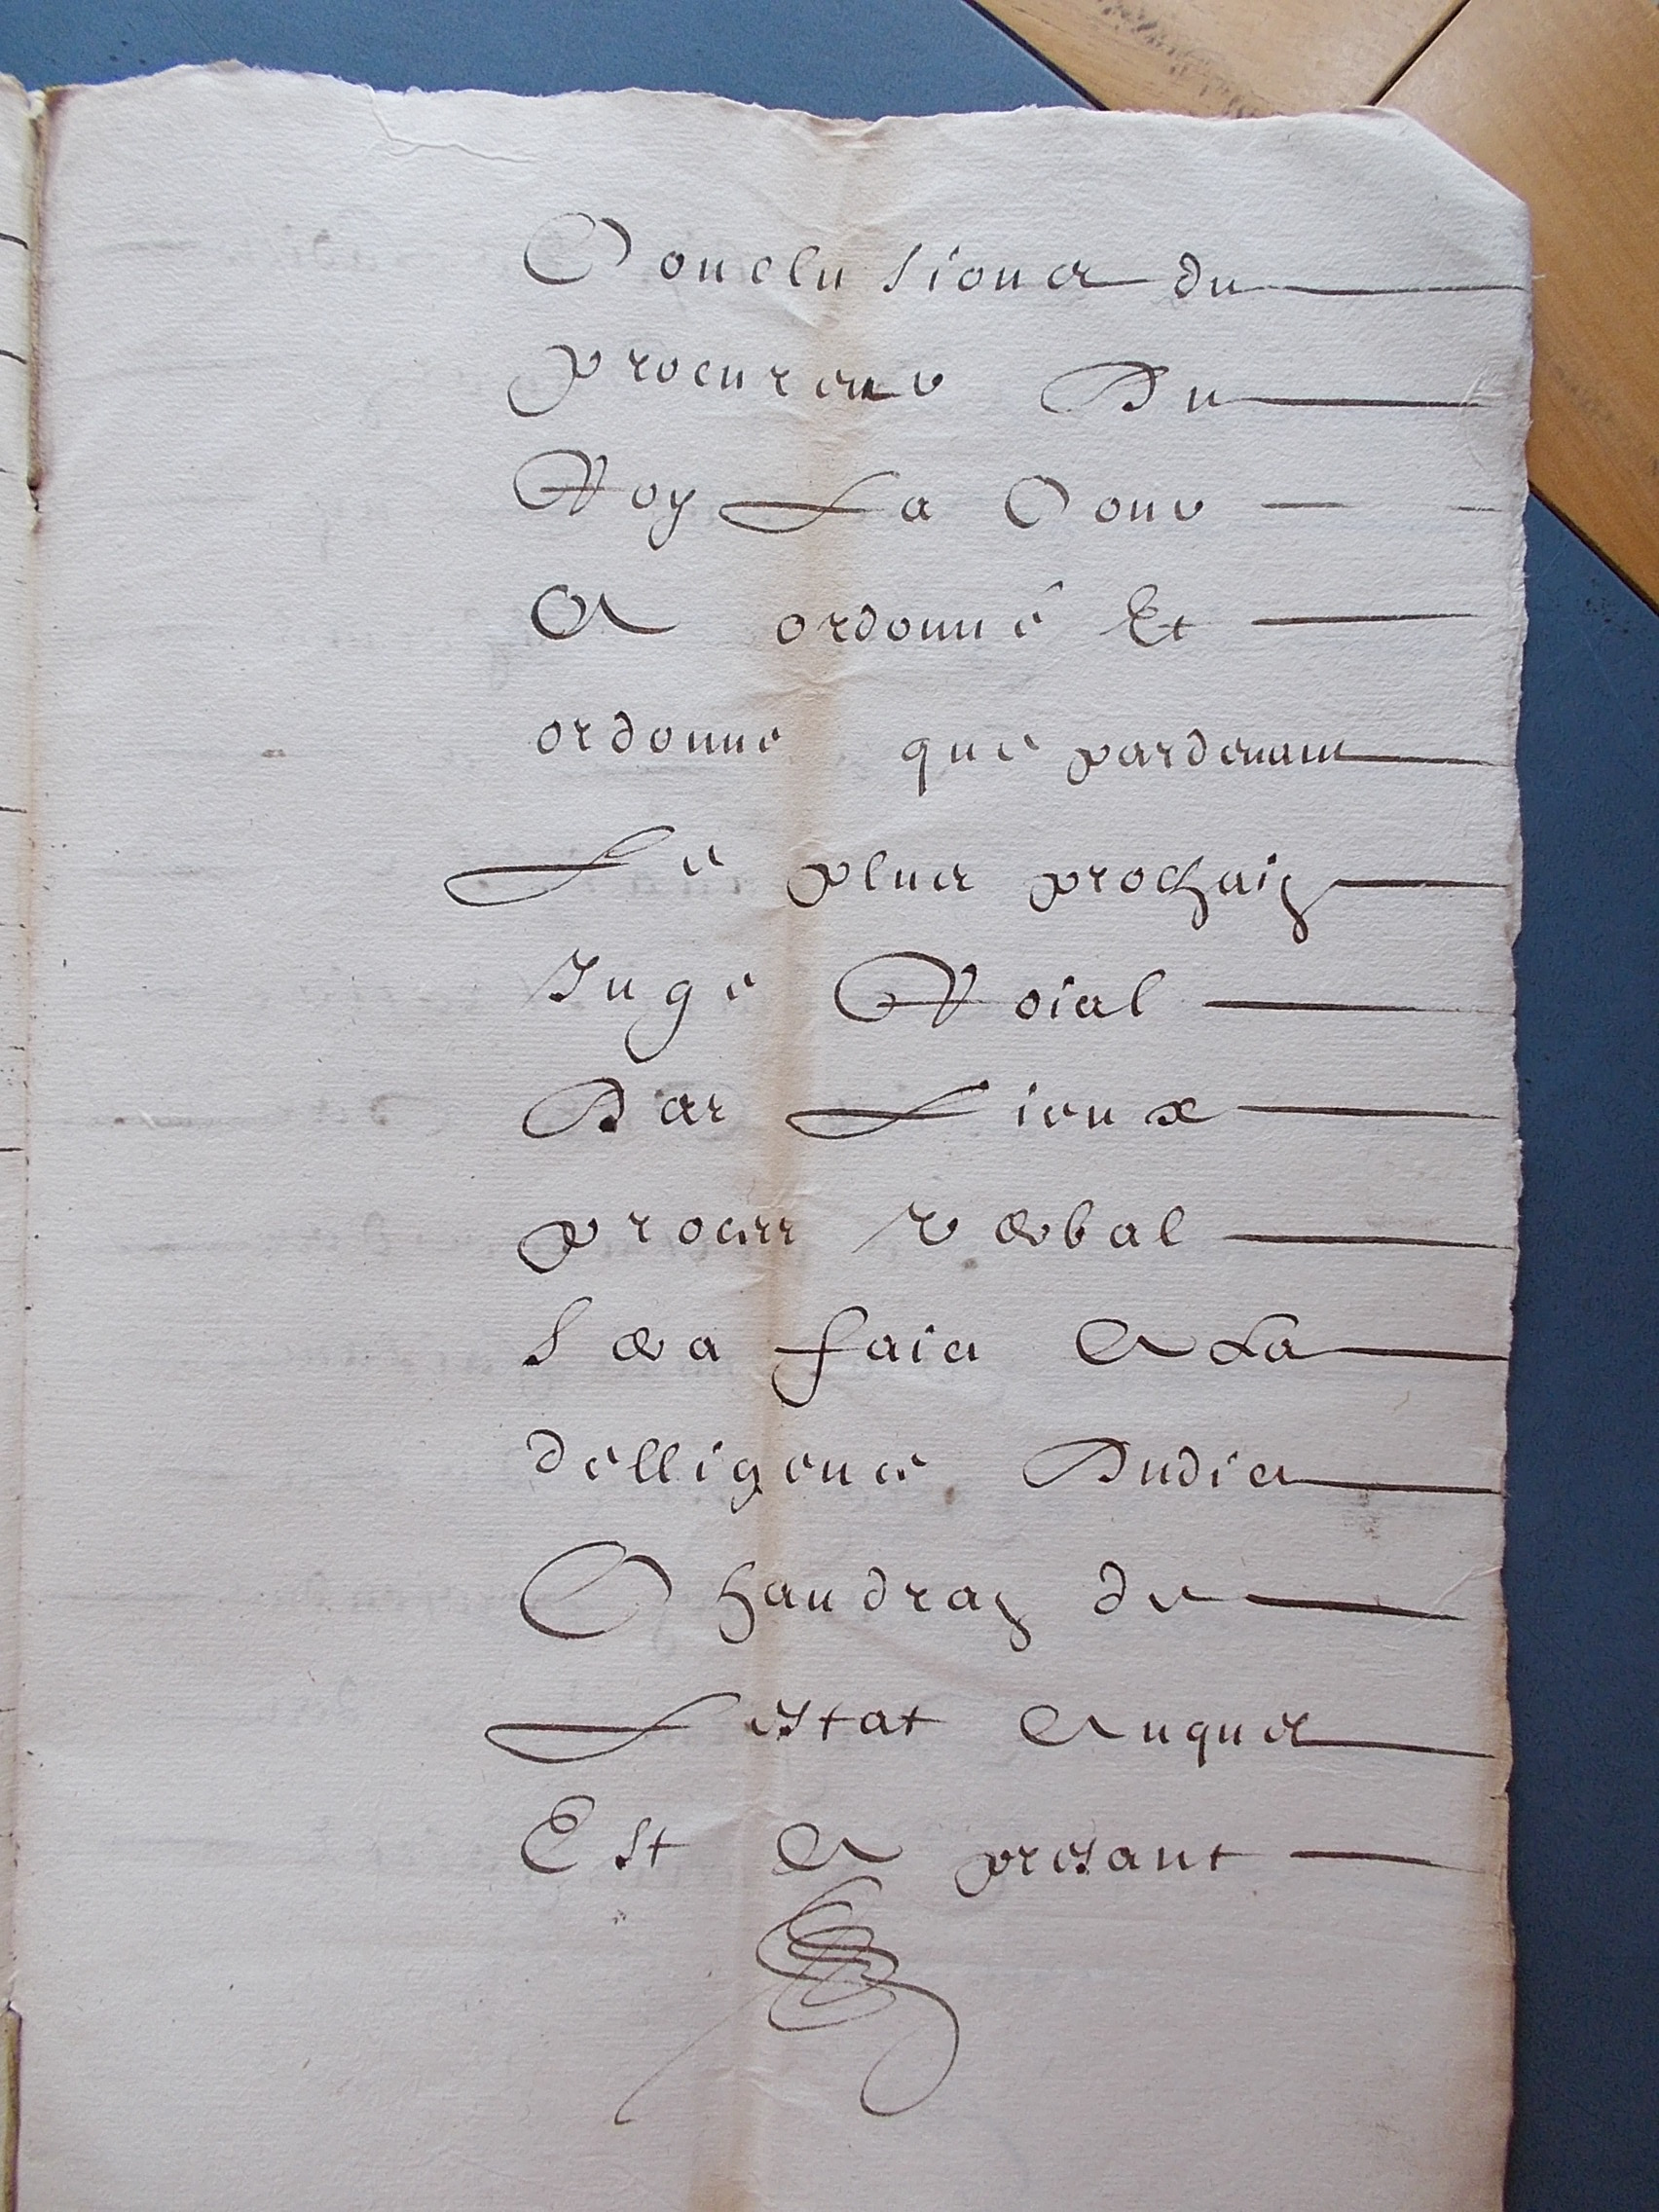 Conclusions du
procureur Du
Roy La Cour
A ordonné Et
ordonne que pardevant
Le plus prochain
Juge Roial
Des Lieux
proces verbal
Sera faict A La
delligence Dudict
Chaudray de
Lestat Auquel
Est A presant